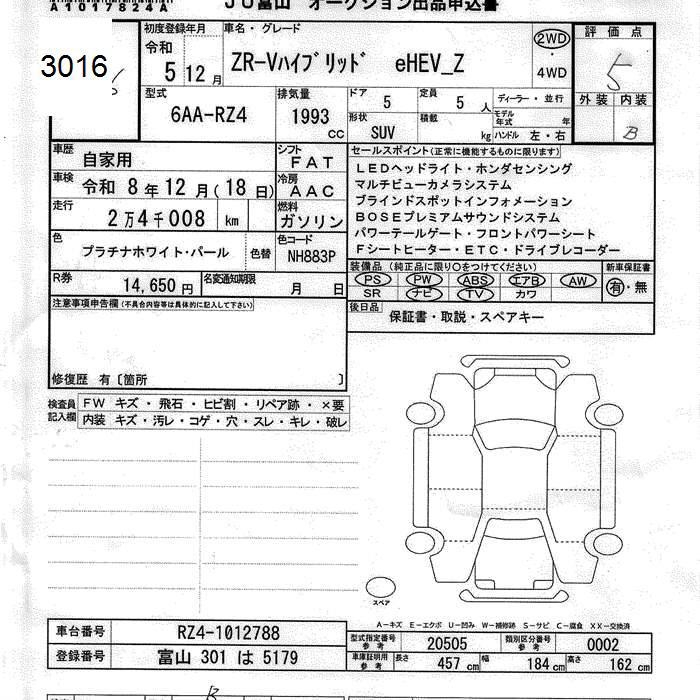 A1017824A
JU富山 オークション出品申込書
3016
初度登録年月
令和
5 12月
車名・グレード
ZR-Vハイブリッド eHEV_Z
2WD
4WD
評価点
5
外装 内装
B
型式
6AA-RZ4
排気量
1993
CC
ドア
5
定員
5 人
ディーラー・並行
形状
SUV
積載
kg
モデル年式
年
ハンドル 左・右
車歴
自家用
シフト
FAT
車検
令和 8年12月(18日)
冷房
AAC
走行
2万4千008 km
燃料
ガソリン
色
プラチナホワイト・パール
色替
色コード
NH883P
R券
14,650円
名変通知期限
月 日
セールスポイント(正常に機能するものに限ります)
LEDヘッドライト・ホンダセンシング
マルチビューカメラシステム
ブラインドスポットインフォメーション
BOSEプレミアムサウンドシステム
パワーテールゲート・フロントパワーシート
Fシートヒーター・ETC・ドライブレコーダー
装備品(純正品に限り○をつけてください)
新車保証書
PS PW ABS エアB AW
有・無
SR ナビ TV カワ
後日品
保証書・取説・スペアキー
注意事項申告欄(不具合内容等は具体的に記入して下さい)
修復歴 有〔箇所 〕
検査員記入欄
FW キズ・飛石・ヒビ割・リペア跡・×要
内装 キズ・汚レ・コゲ・穴・スレ・キレ・破レ
スペア
A-キズ E-エクボ U-凹み W-補修跡 S-サビ C-腐食 XX-交換済
車台番号
RZ4-1012788
登録番号
富山 301 は 5179
型式指定番号
参考
20505
類別区分番号
参考
0002
車庫証明用
参考
長さ
457 cm
幅
184 cm
高さ
162 cm
B